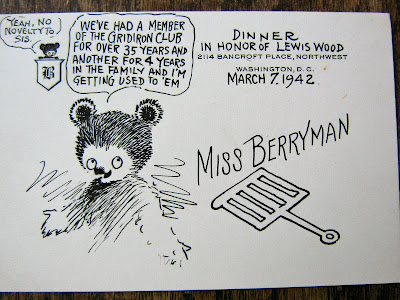 YEAH, NO
NOVELTY TO
SIS.
B
WE'VE HAD A MEMBER
OF THE GRIDIRON CLUB
FOR OVER 35 YEARS AND
ANOTHER FOR 4 YEARS
IN THE FAMILY AND I'M
GETTING USED TO 'EM
DINNER
IN HONOR OF LEWIS WOOD
2114 BANCROFT PLACE, NORTHWEST
WASHINGTON, D.C.
MARCH 7. 1942.
MISS BERRYMAN